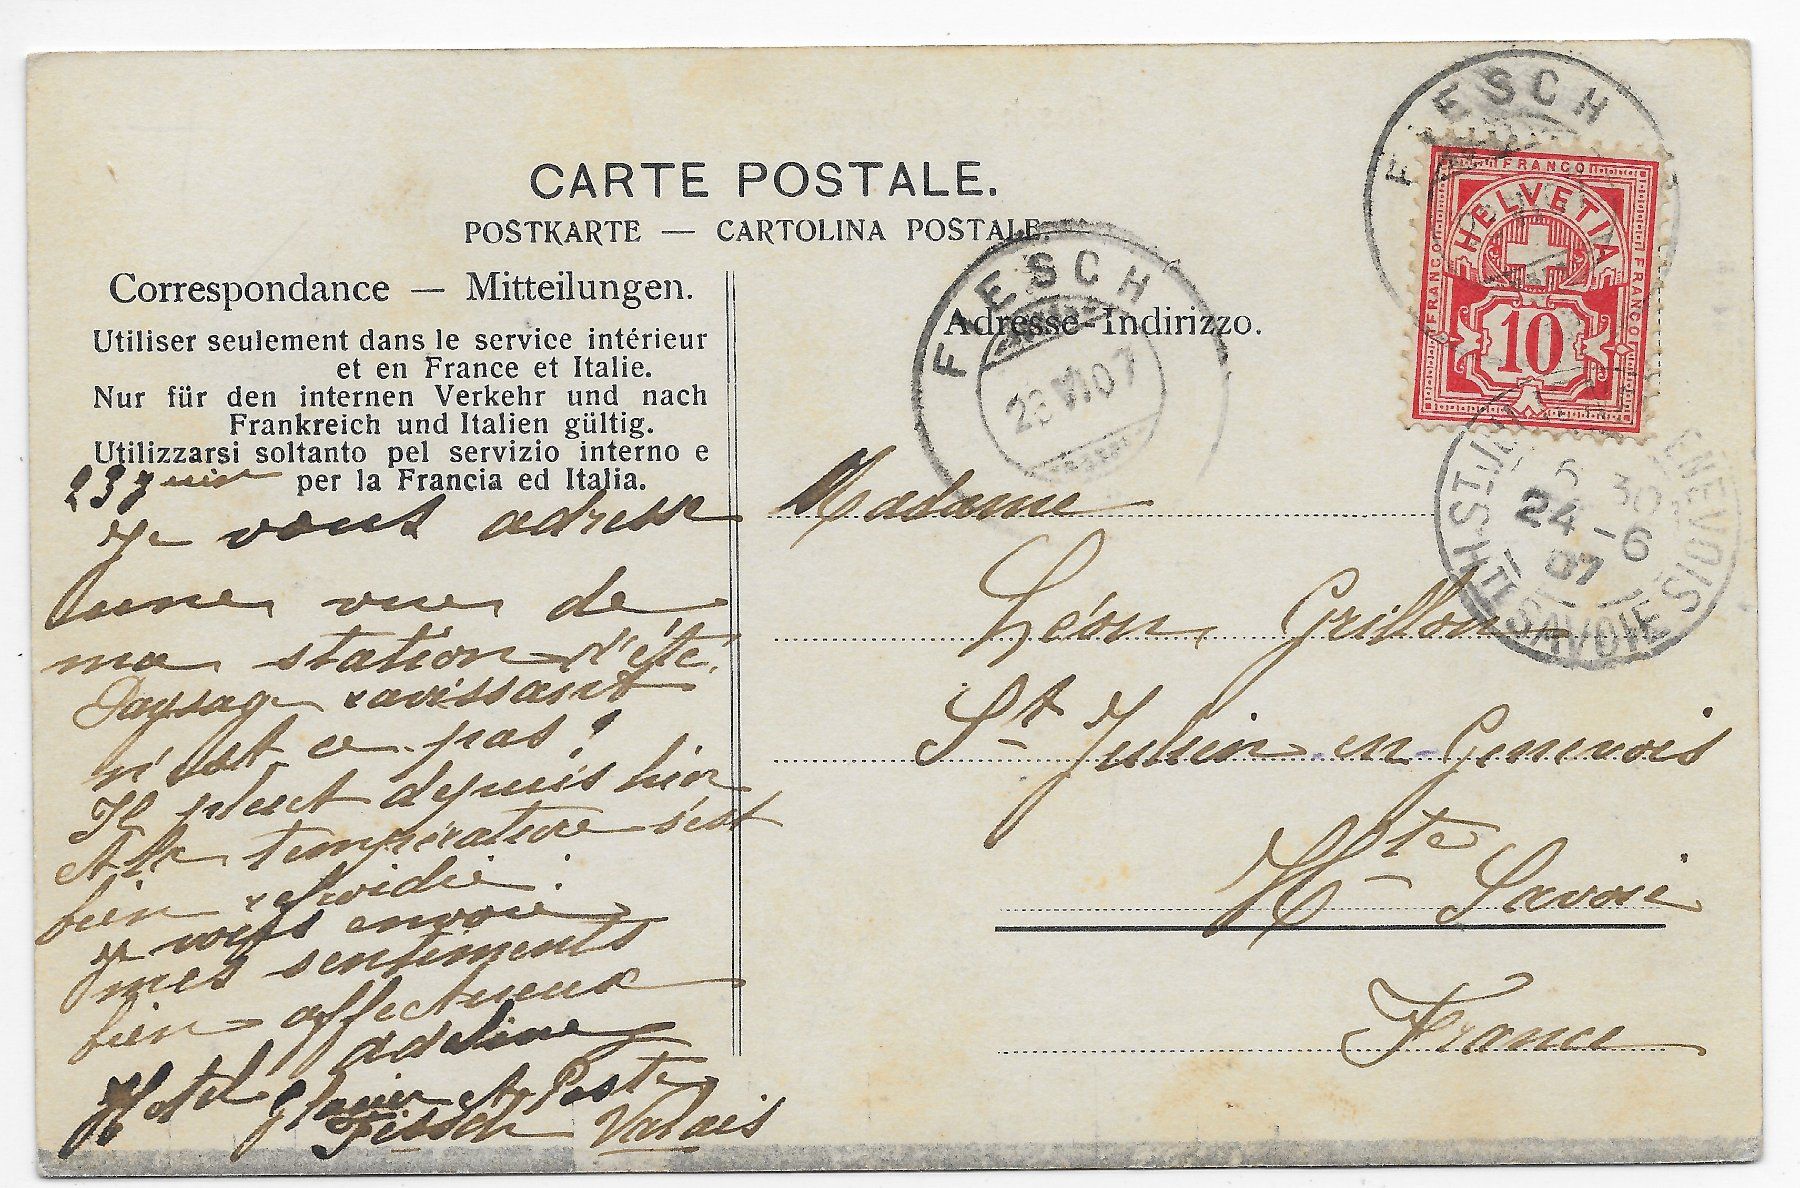 CARTE POSTALE.
POSTKARTE — CARTOLINA POSTALE.
Correspondance — Mitteilungen.
Utiliser seulement dans le service intérieur
et en France et Italie.
Nur für den internen Verkehr und nach
Frankreich und Italien gültig.
Utilizzarsi soltanto pel servizio interno e
per la Francia ed Italia.
23 juin
Je vous adresse
une vue de
ma station d'été.
Paysage ravissant
n'est ce pas!
Il pleut depuis hier
et la température s'est
bien refroidie.
Je vous envoie
mes sentiments
bien affectueux
adeline
Hotel glacier et Poste
Fiesch Valais
Adresse-Indirizzo.
Madame
Léon Grillon
St Julien-en-Genevois
Hte Savoie
France
FIESCH
23 VI 07
FIESCH
FRANCO
FRANCO
FRANCO
HELVETIA
10
ST JULIEN EN GENEVOIS
6 30
24 -6
07
HTE SAVOIE